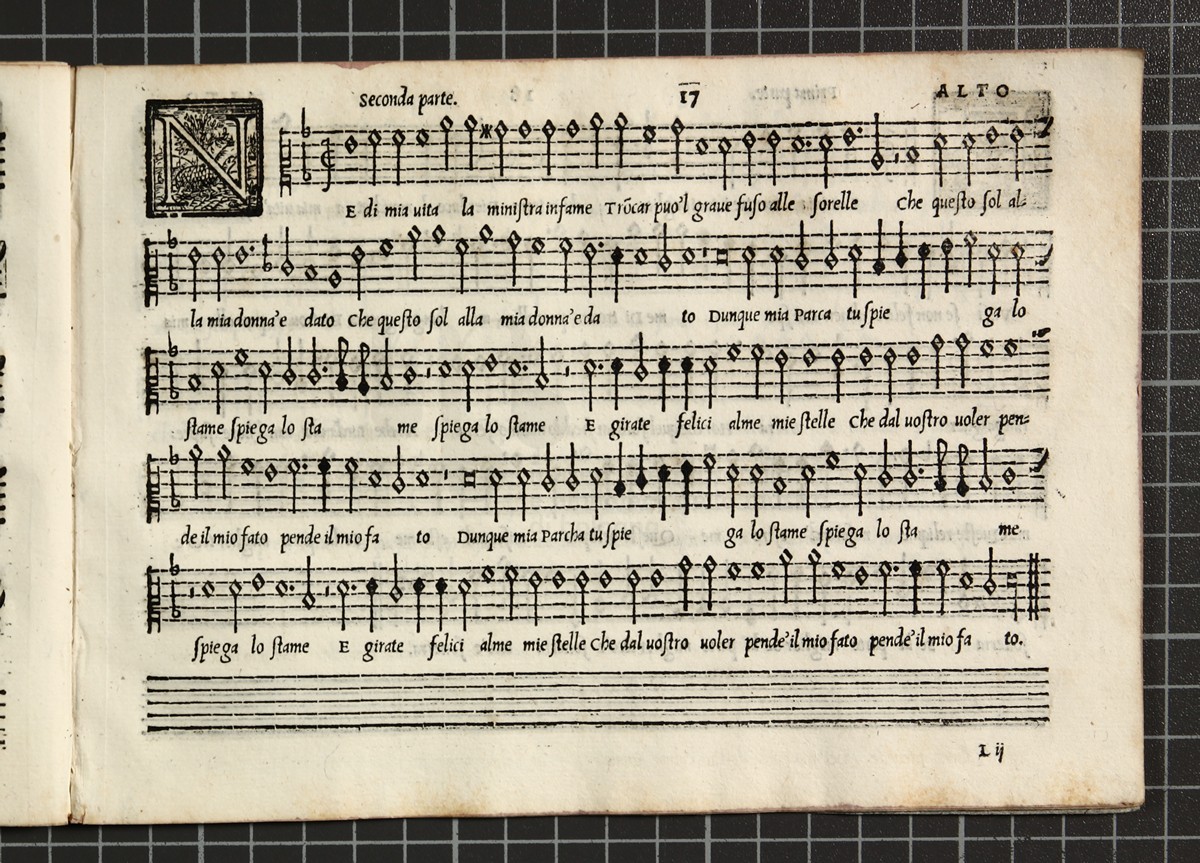 Seconda parte. 17 ALTO
NE di mia uita la miniſtra infame Trõcar puo'l graue fuſo alle ſorelle Che queſto ſol al=
la mia donna'e dato Che queſto ſol alla mia donna'e da to Dunque mia Parca tu ſpie ga lo
ſtame ſpiega lo ſta me ſpiega lo ſtame E girate felici alme mie ſtelle Che dal uoſtro uoler pen=
de il mio fato pende il mio fa to Dunque mia Parcha tu ſpie ga lo ſtame ſpiega lo ſta me
ſpiega lo ſtame E girate felici alme mie ſtelle Che dal uoſtro uoler pende'il mio fato pende'il mio fa to.
L ij